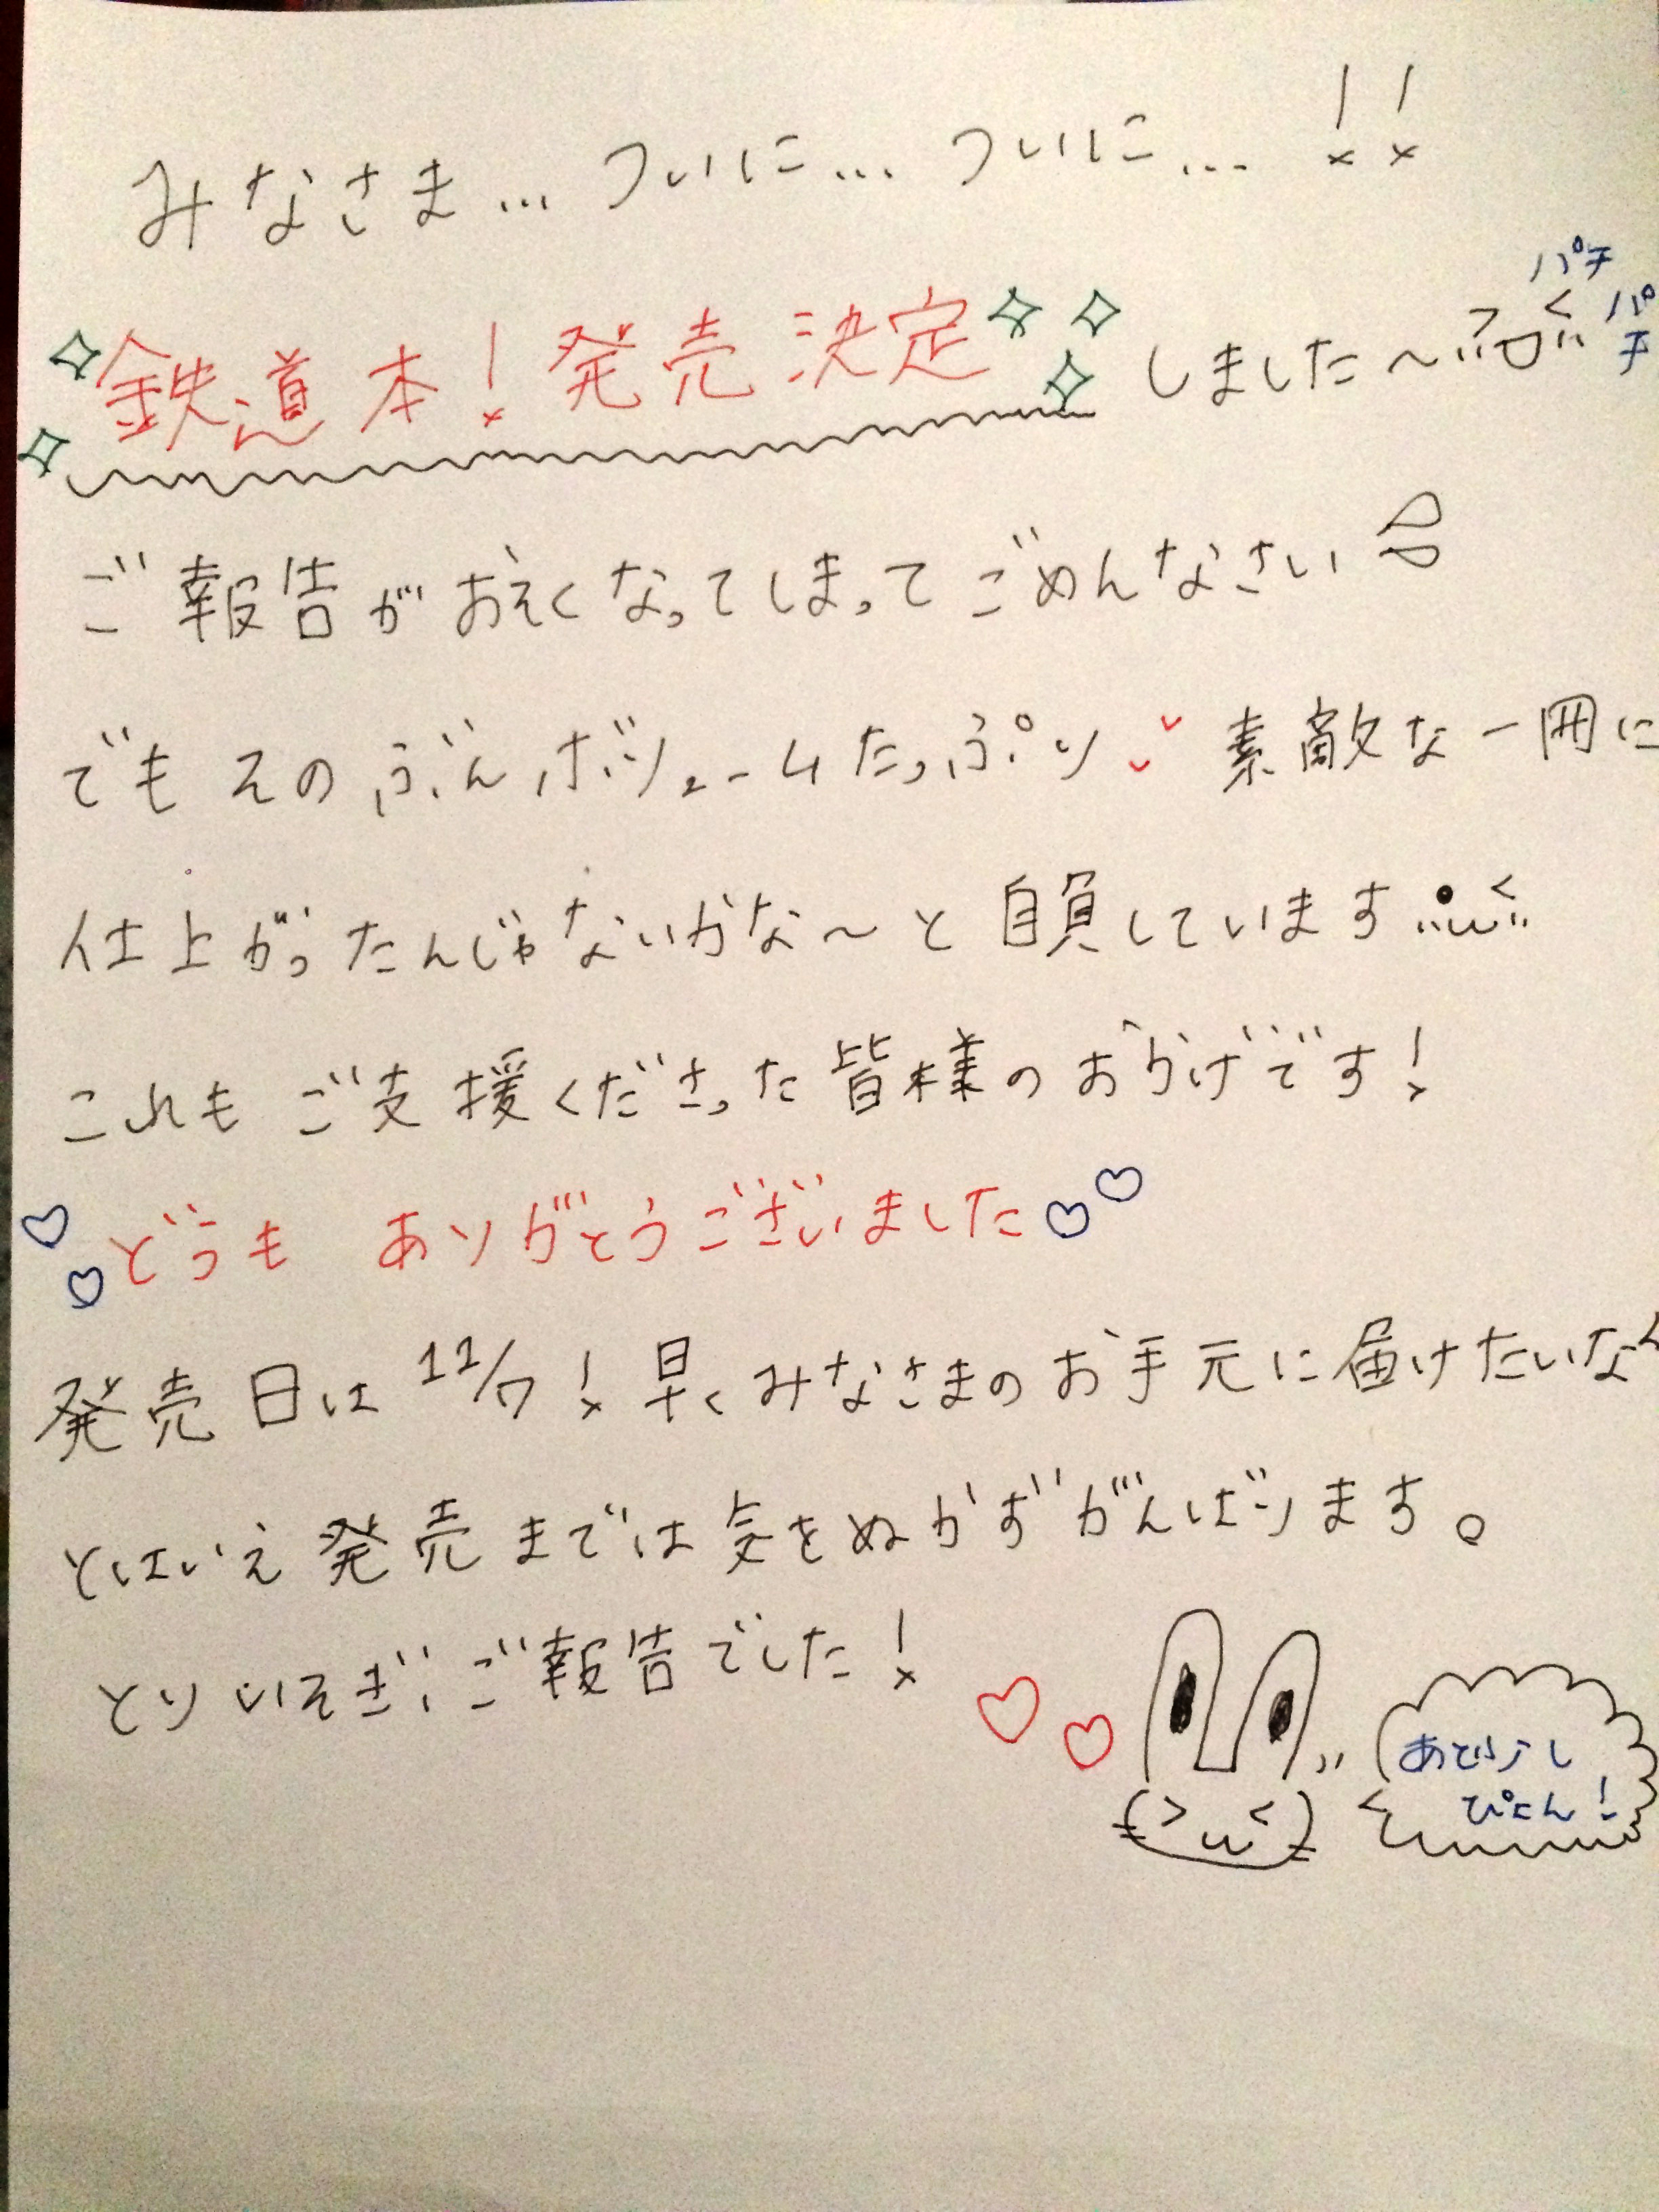 みなさま…ついに…ついに…!!
鉄道本!発売決定しました〜
パチ
パチ
ご報告がおそくなってしまってごめんなさい
でもそのぶんボリュームたっぷり 素敵な一冊に
仕上がったんじゃないかな〜と自負しています
これもご支援くださった皆様のおかげです!
どうも ありがとうございました
発売日は11/7!早くみなさまのお手元に届けたいな
とはいえ発売までは気をぬかずがんばります。
とりいそぎ、ご報告でした!
ぴょん!